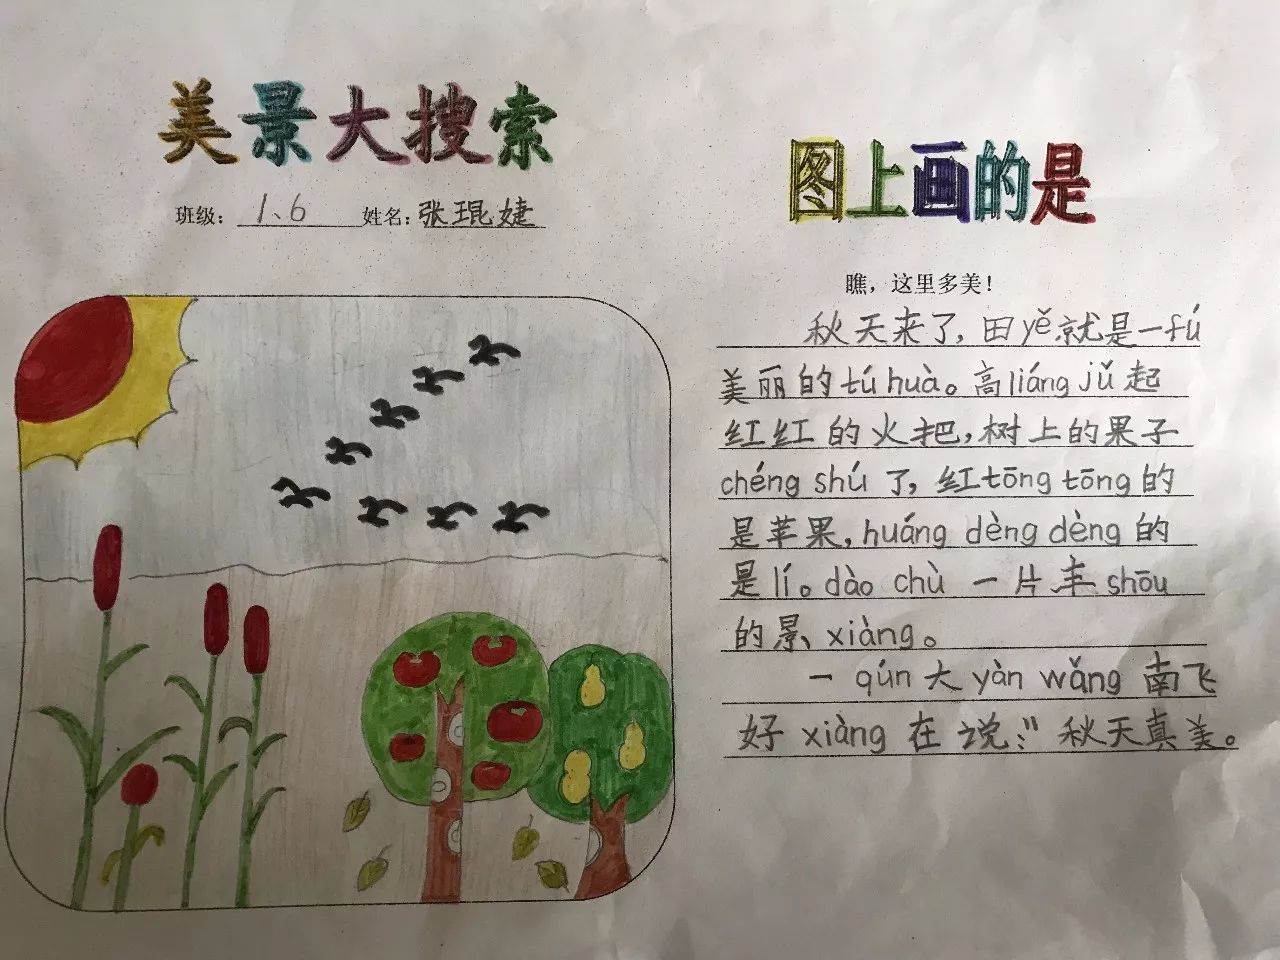 美景大搜索
班级：1、6 姓名：张琨婕
图上画的是
瞧，这里多美！
秋天来了，田yě就是一fú
美丽的tú huà。高liáng jǔ起
红红的火把，树上的果子
chéng shú了，红tōng tōng的
是苹果，huáng dèng dèng的
是lí。dào chù一片丰shōu
的景xiàng。
一qún大yàn wǎng南飞
好xiàng在说：“秋天真美。